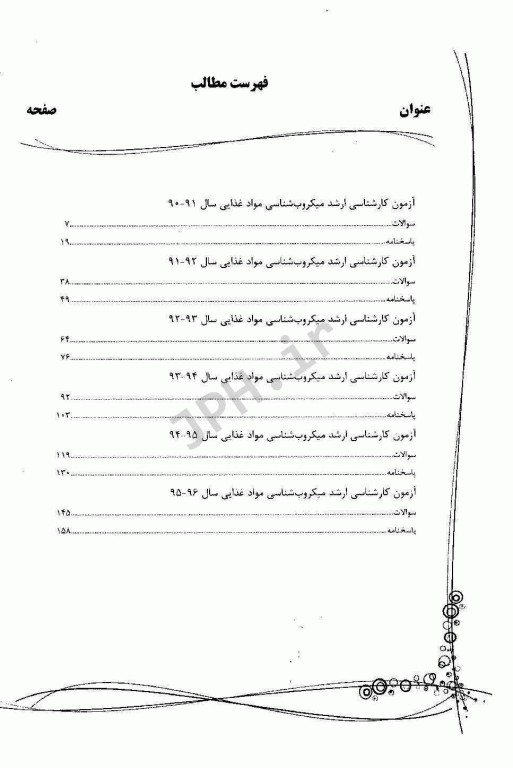 فهرست مطالب
عنوان صفحه
آزمون کارشناسی ارشد میکروب‌شناسی مواد غذایی سال ۹۱-۹۰
سوالات ۷
پاسخنامه ۱۹
آزمون کارشناسی ارشد میکروب‌شناسی مواد غذایی سال ۹۲-۹۱
سوالات ۳۸
پاسخنامه ۴۹
آزمون کارشناسی ارشد میکروب‌شناسی مواد غذایی سال ۹۳-۹۲
سوالات ۶۴
پاسخنامه ۷۶
آزمون کارشناسی ارشد میکروب‌شناسی مواد غذایی سال ۹۴-۹۳
سوالات ۹۲
پاسخنامه ۱۰۳
آزمون کارشناسی ارشد میکروب‌شناسی مواد غذایی سال ۹۵-۹۴
سوالات ۱۱۹
پاسخنامه ۱۳۰
آزمون کارشناسی ارشد میکروب‌شناسی مواد غذایی سال ۹۶-۹۵
سوالات ۱۴۵
پاسخنامه ۱۵۸
JPH.ir